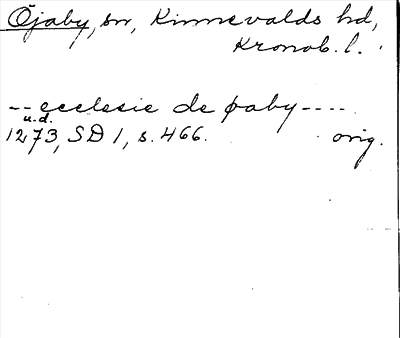 Öjaby, sn, Kinnevalds hd,
Kronob. l.
-- ecclesie de øaby ----
u.d.
1273, SD 1, s. 466. orig.